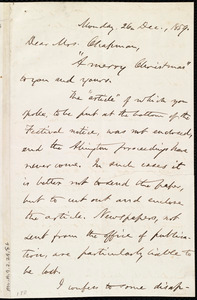 Monday 26 Dec., 1859.
Dear Mrs. Chapman,
"A merry Christmas"
to you and yours.
The "article" of which you
spoke, to be put at the bottom of the
Festival notice, was not enclosed,
and the Abington proceedings have
never come. In such cases it
is better not to send the paper,
but to cut out and enclose
the article. Newspapers, not
sent from the office of publica-
tion, are particularly liable to
be lost.
I confess to some disap-